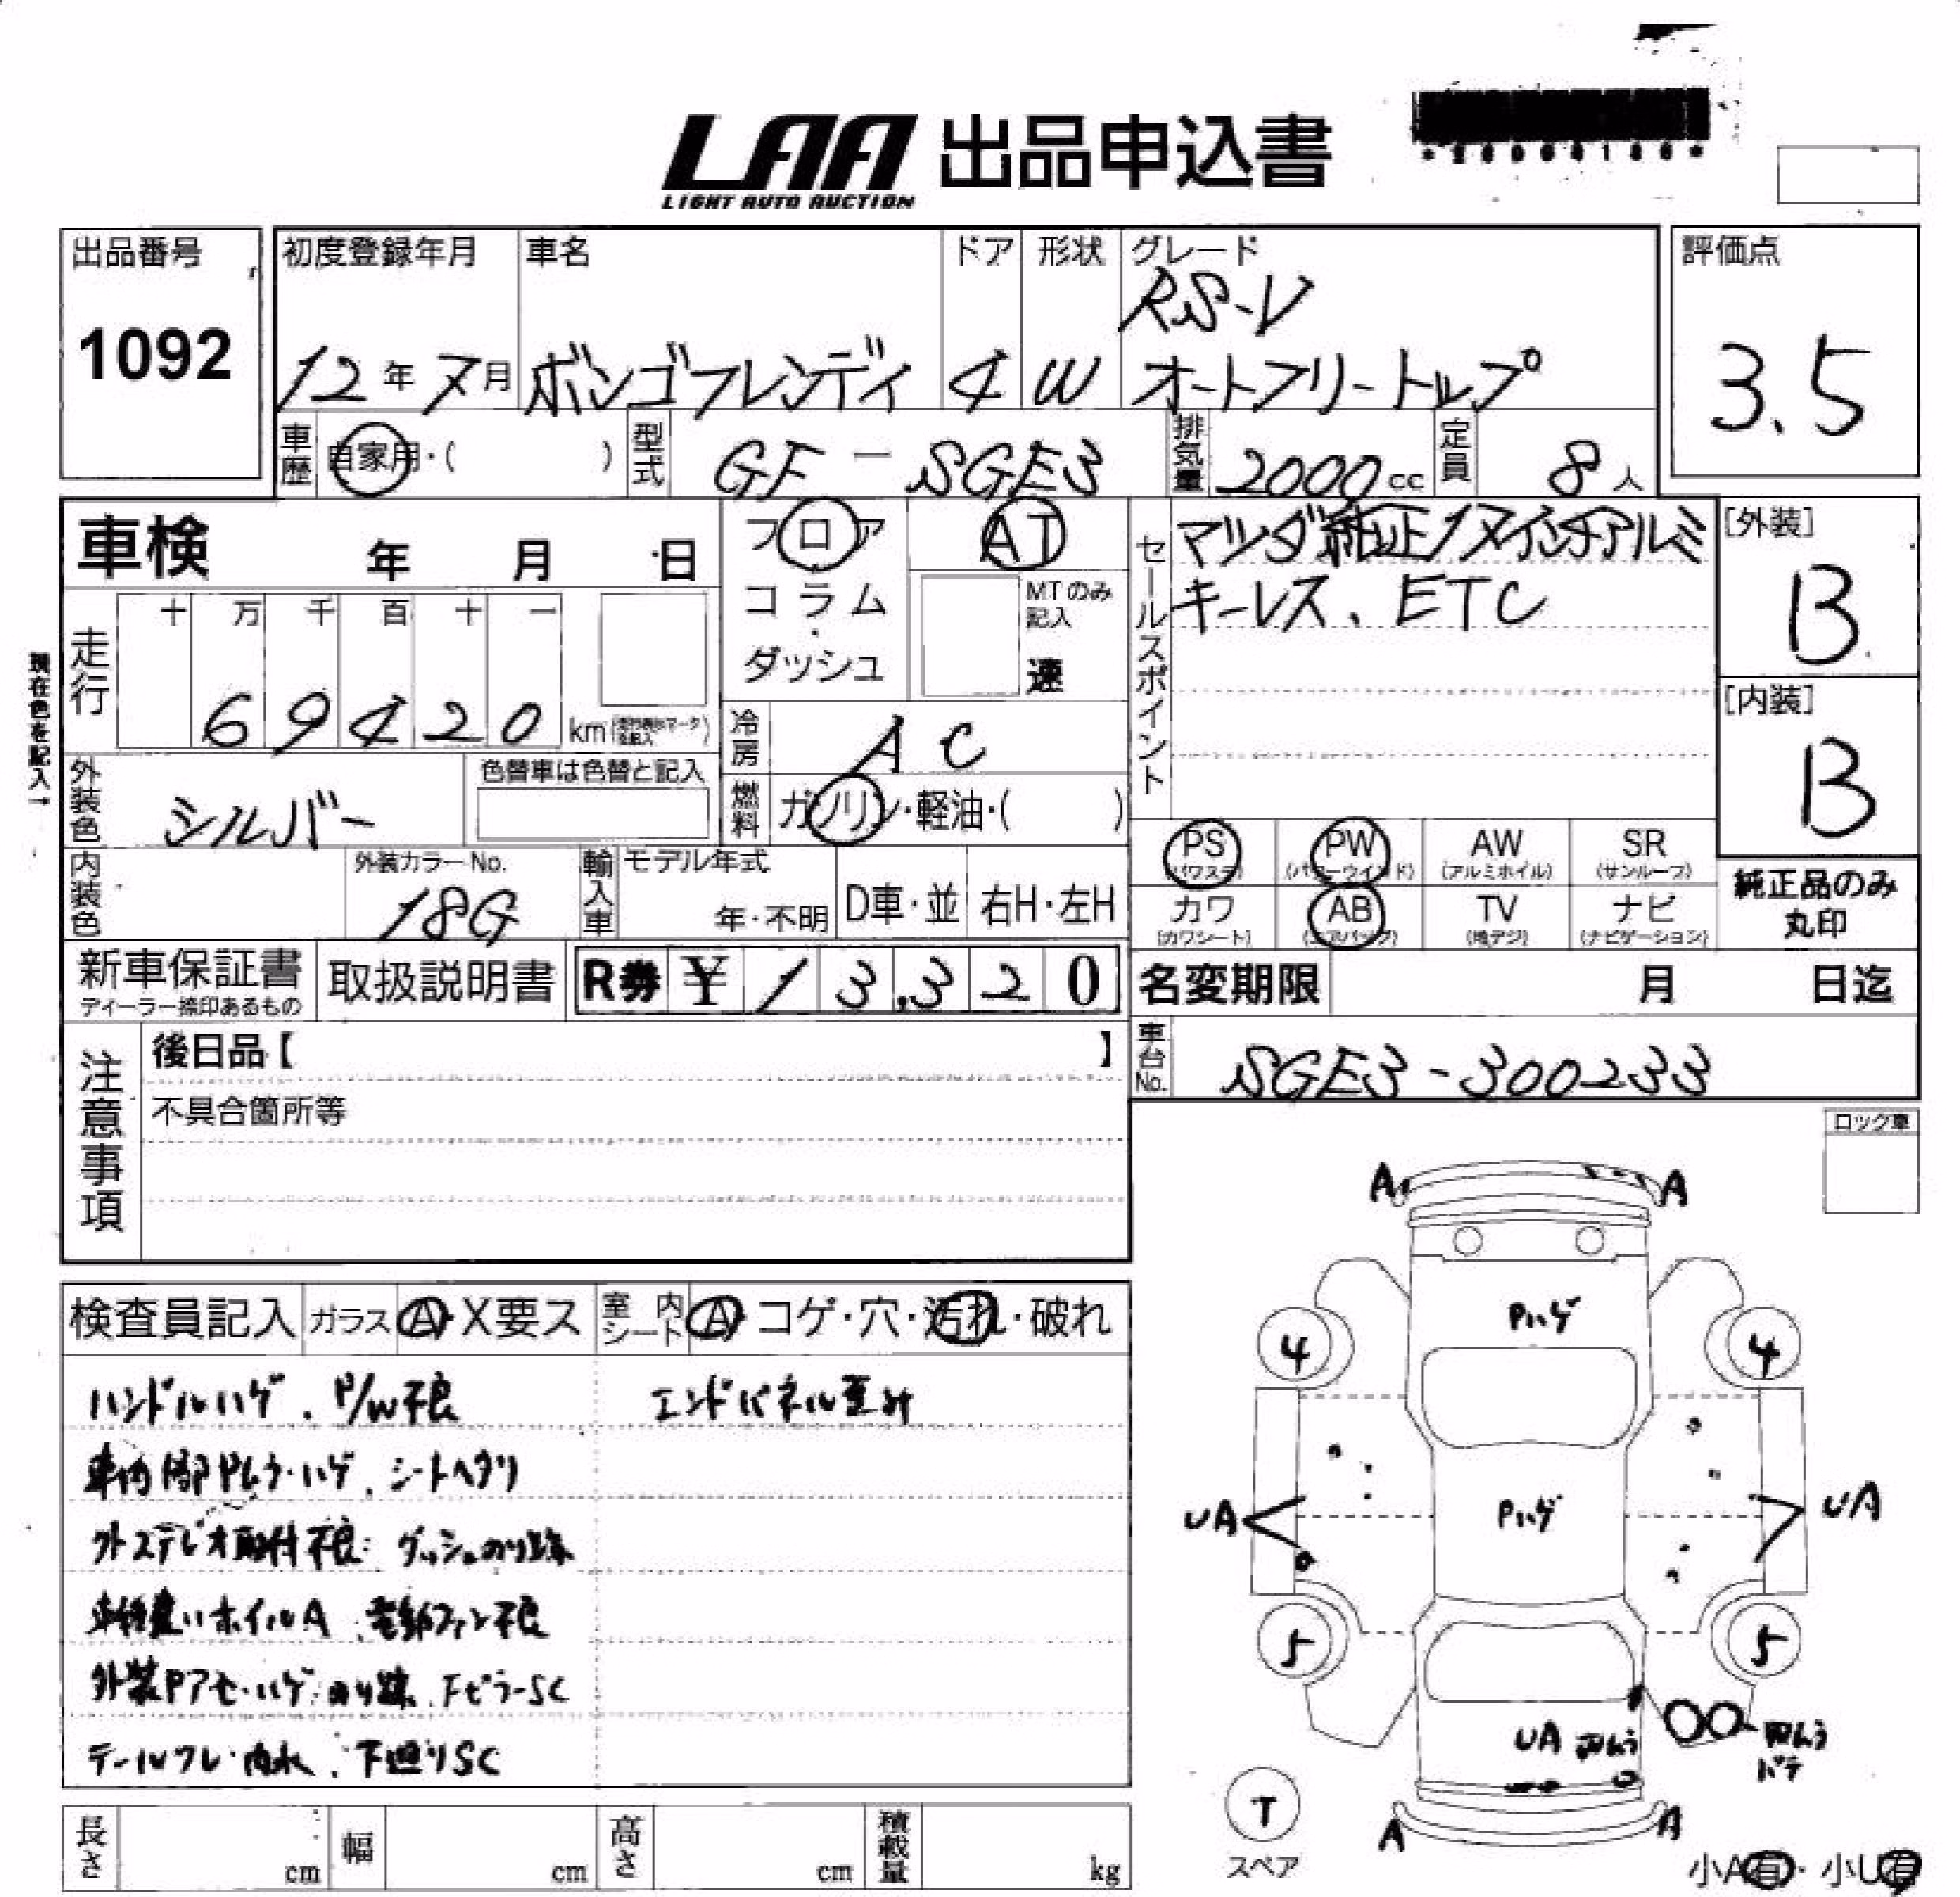 LAA 出品申込書
LIGHT AUTO AUCTION
出品番号
1092
初度登録年月
12年7月
車名
ボンゴフレンディ
ドア
4
形状
W
グレード
RS-V
オートフリートップ
評価点
3.5
車歴
自家用・( )
型式
GF-SGE3
排気量
2000cc
定員
8人
車検 年 月 日
フロア
コラム
・
ダッシュ
AT
MTのみ
記入
速
セールスポイント
マツダ純正17インチアルミ
キーレス、ETC
[外装]
B
[内装]
B
現在色を記入→
走行
十 万 千 百 十 一
69420 km
冷房
AC
外装色
シルバー
色替車は色替と記入
燃料
ガソリン・軽油・( )
内装色
外装カラーNo.
18G
輸入車
モデル年式
年・不明
D車・並
右H・左H
PS
(パワステ)
PW
(パワーウインド)
AW
(アルミホイル)
SR
(サンルーフ)
カワ
(カワシート)
AB
(エアバッグ)
TV
(地デジ)
ナビ
(ナビゲーション)
純正品のみ
丸印
新車保証書
ディーラー捺印あるもの
取扱説明書
R券 ¥13,320
名変期限 月 日迄
車台No.
SGE3-300233
注意事項
後日品【 】
不具合箇所等
ロック車
検査員記入
ガラス
A・X要ス
室内
シート
A・コゲ・穴・汚れ・破れ
ハンドルハゲ、P/W不良
エンドパネル歪み
車内内部Pムラ・ハゲ、シートヘタリ
外ステレオ取付不良 ダッシュのり跡
車種違いホイルA 電動ファン不良
外装Pアセ・ハゲ のり跡 下ピラーSC
テールワレ・内水 下廻りSC
A A
Pハゲ
4 4
Pハゲ
UA UA
5 5
UA 凹ムラ
凹ムラ
パテ
T
スペア
A A
小A有・小U有
長さ cm
幅 cm
高さ cm
積載量 kg